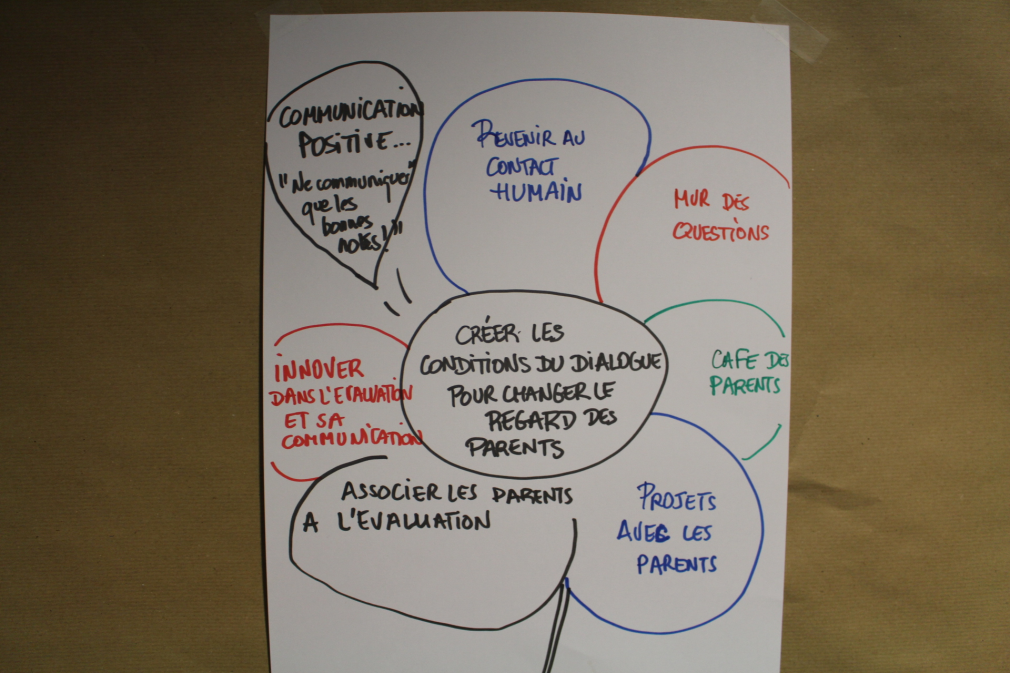 COMMUNICATION
POSITIVE...
"Ne communiquer"
que les
bonnes
notes!"
REVENIR AU
CONTACT
HUMAIN
MUR DES
QUESTIONS
CRÉER LES
CONDITIONS DU DIALOGUE
POUR CHANGER LE
REGARD DES
PARENTS
CAFE DES
PARENTS
INNOVER
DANS L'EVALUATION
ET SA
COMMUNICATION
ASSOCIER LES PARENTS
A L'EVALUATION
PROJETS
AVEC LES
PARENTS